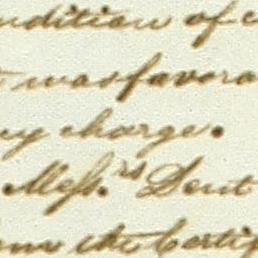 ndition of c
t was favora
ny charge.
Mess.rs Dent
the Certif